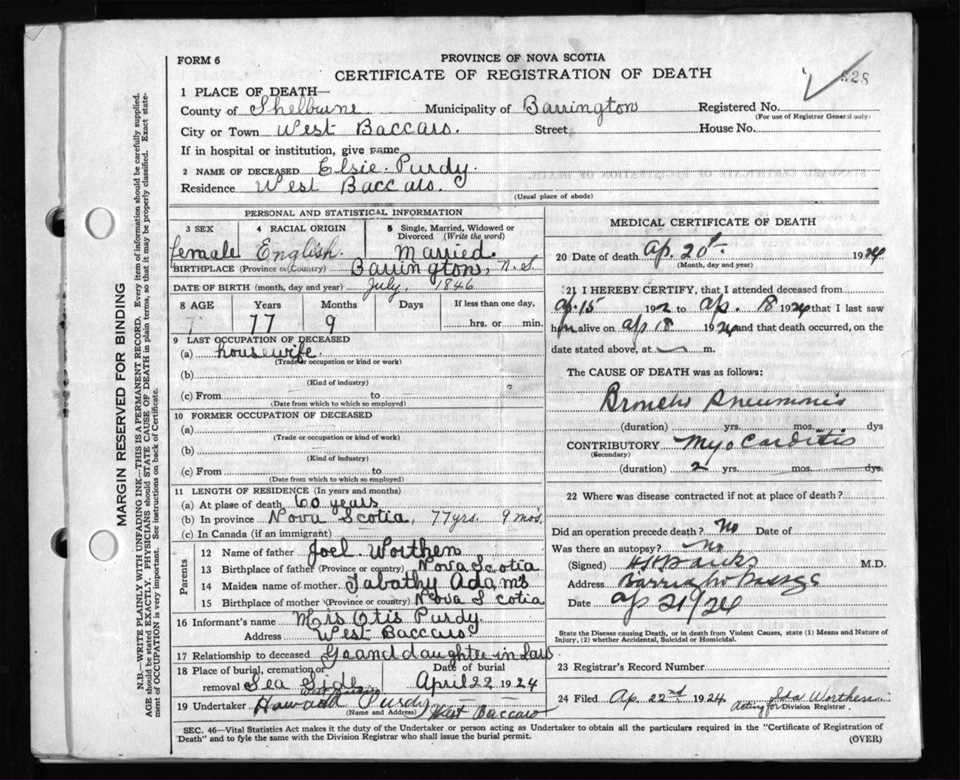 FORM 6
PROVINCE OF NOVA SCOTIA
CERTIFICATE OF REGISTRATION OF DEATH
528
1 PLACE OF DEATH—
County of Shelburne Municipality of Barrington Registered No.
(For use of Registrar General only)
City or Town West Baccaro. Street House No.
If in hospital or institution, give name
2 NAME OF DECEASED Elsie Purdy.
Residence West Baccaro.
(Usual place of abode)
PERSONAL AND STATISTICAL INFORMATION
3 SEX 4 RACIAL ORIGIN 5 Single, Married, Widowed or Divorced (Write the word)
female English. Married.
BIRTHPLACE (Province or Country) Barrington, N.S
DATE OF BIRTH (month, day and year) July, 1846
8 AGE Years Months Days If less than one day,
77 9 hrs. or min.
9 LAST OCCUPATION OF DECEASED
(a) housewife.
(Trade or occupation or kind or work)
(b)
(Kind of industry)
(c) From to
(Date from which to which so employed)
10 FORMER OCCUPATION OF DECEASED
(a)
(Trade or occupation or kind of work)
(b)
(Kind of industry)
(c) From to
(Date from which to which so employed)
11 LENGTH OF RESIDENCE (In years and months)
(a) At place of death 60 years
(b) In province Nova Scotia, 77 yrs. 9 mos.
(c) In Canada (if an immigrant)
Parents
12 Name of father Joel Worthen
13 Birthplace of father (Province or country) Nova Scotia
14 Maiden name of mother Tabathy Adams
15 Birthplace of mother (Province or country) Nova Scotia
16 Informant's name Mrs Otis Purdy.
Address West Baccaro
17 Relationship to deceased Graanddaughter in law
18 Place of burial, cremation or removal Sea Side West Baccaro
Date of burial April 22 1924
19 Undertaker Howard Purdy West Baccaro
(Name and Address)
MEDICAL CERTIFICATE OF DEATH
20 Date of death Ap. 20th 1924
(Month, day and year)
21 I HEREBY CERTIFY, that I attended deceased from
Ap. 15 192 to Ap. 18 1924 that I last saw
him alive on Ap 18 1924 and that death occurred, on the
date stated above, at m.
The CAUSE OF DEATH was as follows:
Broncho Pneumonia
(duration) yrs. mos. dys
CONTRIBUTORY Myocarditis
(Secondary)
(duration) 2 yrs. mos. dys.
22 Where was disease contracted if not at place of death?
Did an operation precede death? No Date of
Was there an autopsy? No
(Signed) M.D.
Address Barrington Passage
Date Ap 21/24
State the Disease causing Death, or in death from Violent Causes, state (1) Means and Nature of
Injury, (2) whether Accidental, Suicidal or Homicidal.
23 Registrar's Record Number
24 Filed Ap. 22nd 1924 Ida Worthen
Acting for Division Registrar.
SEC. 46—Vital Statistics Act makes it the duty of the Undertaker or person acting as Undertaker to obtain all the particulars required in the "Certificate of Registration of
Death" and to fyle the same with the Division Registrar who shall issue the burial permit.
(OVER)
MARGIN RESERVED FOR BINDING
N.B.—WRITE PLAINLY WITH UNFADING INK—THIS IS A PERMANENT RECORD. Every item of information should be carefully supplied.
AGE should be stated EXACTLY. PHYSICIANS should STATE CAUSE OF DEATH in plain terms, so that it may be properly classified. Exact state-
ment of OCCUPATION is very important. See instructions on back of Certificate.